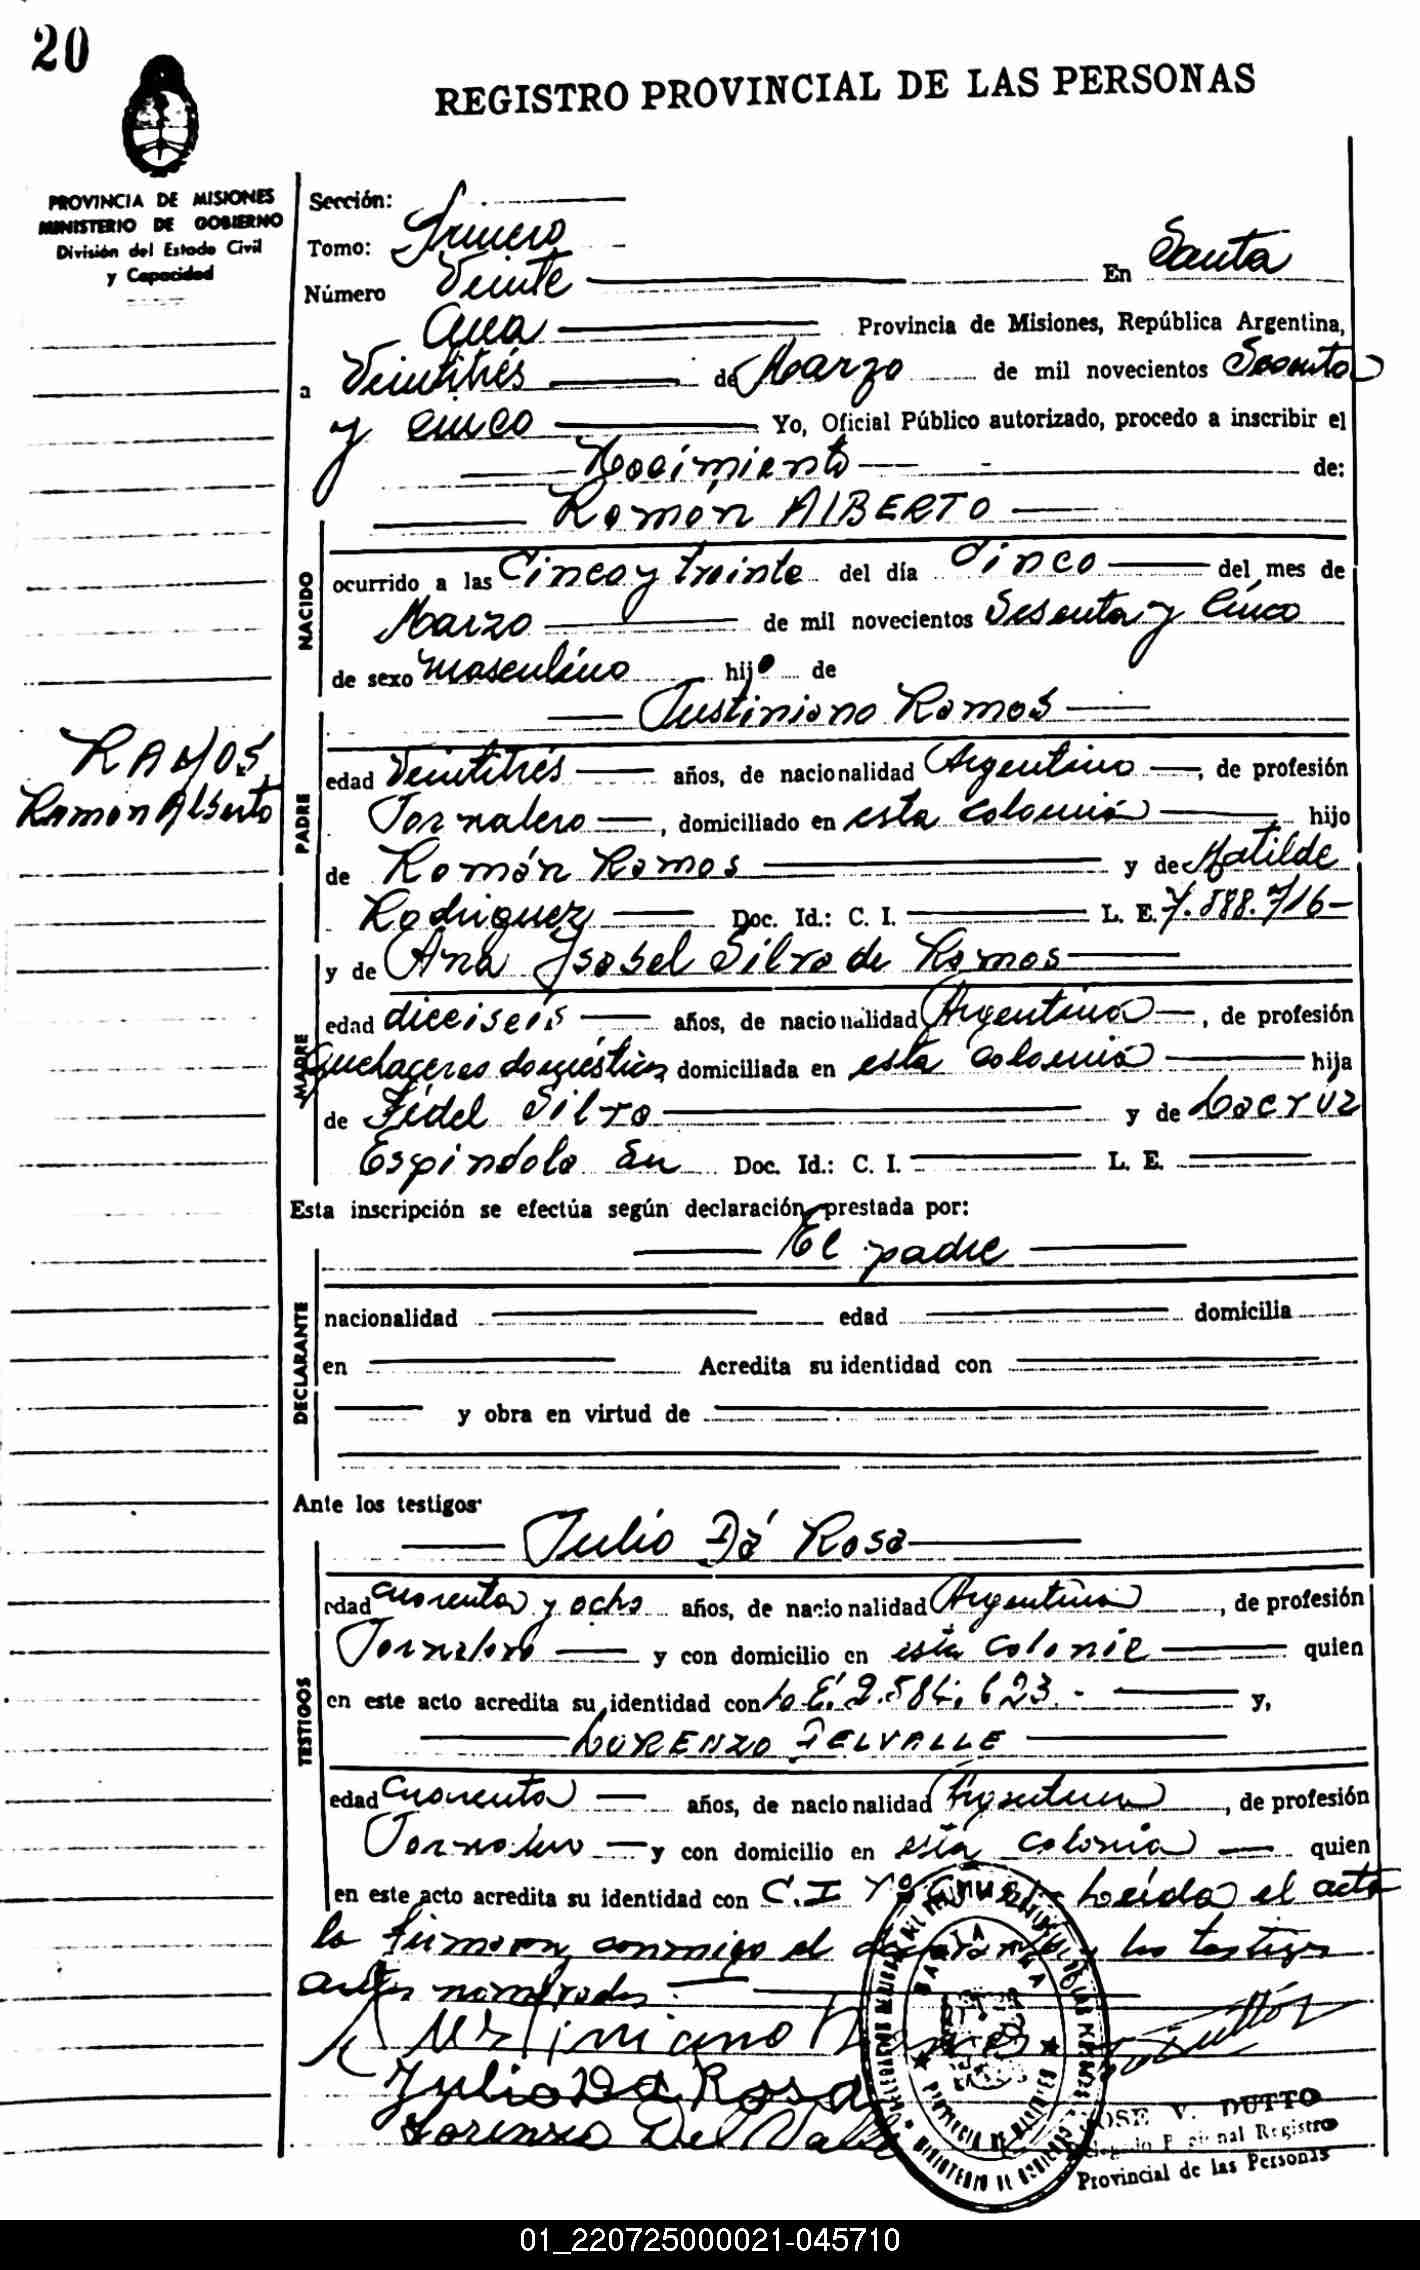 20
REGISTRO PROVINCIAL DE LAS PERSONAS
PROVINCIA DE MISIONES
MINISTERIO DE GOBIERNO
División del Estado Civil
y Capacidad
Sección:
Tomo: Primero
Número Veinte En Santa
Ana Provincia de Misiones, República Argentina,
a Veintitrés de Marzo de mil novecientos Sesenta
y cinco Yo, Oficial Público autorizado, procedo a inscribir el
Nacimiento de:
Ramón ALBERTO
NACIDO
ocurrido a las Cinco y treinta del día Cinco del mes de
Marzo de mil novecientos Sesenta y Cinco
de sexo masculino hijo de
Justiniano Ramos
RAMOS,
Ramon Alberto
PADRE
edad Veintitrés años, de nacionalidad Argentina, de profesión
Jornalero, domiciliado en esta colonia hijo
de Román Ramos y de Matilde
Rodriguez Doc. Id.: C. I. L. E. 7.888.716
y de Ana Isabel Silva de Ramos
MADRE
edad dieciseis años, de nacionalidad Argentina, de profesión
Quehaceres domésticos domiciliada en esta colonia hija
de Fidel Silva y de Lacruz
Espindola Doc. Id.: C. I. L. E.
Esta inscripción se efectúa según declaración prestada por:
El padre
DECLARANTE
nacionalidad edad domicilia
en Acredita su identidad con
y obra en virtud de
Ante los testigos
Julio Dá Rosa
TESTIGOS
edad cuarenta y ocho años, de nacionalidad Argentina, de profesión
Jornalero y con domicilio en esta colonia quien
en este acto acredita su identidad con L.E. y,
LORENZO DELVALLE
edad Cuarenta años, de nacionalidad Argentina, de profesión
Jornalero y con domicilio en esta colonia quien
en este acto acredita su identidad con C.I Leída el acta
la firmaron conmigo el declarante y los testigos
antes nombrados
Justiniano Ramos
Julio Da Rosa
Lorenzo Del Valle
JOSE V. DUTTO
Delegado Regional Registro
Provincial de las Personas
SANTA ANA
PROVINCIA DE MISIONES
MINISTERIO DE GOBIERNO
01_220725000021-045710